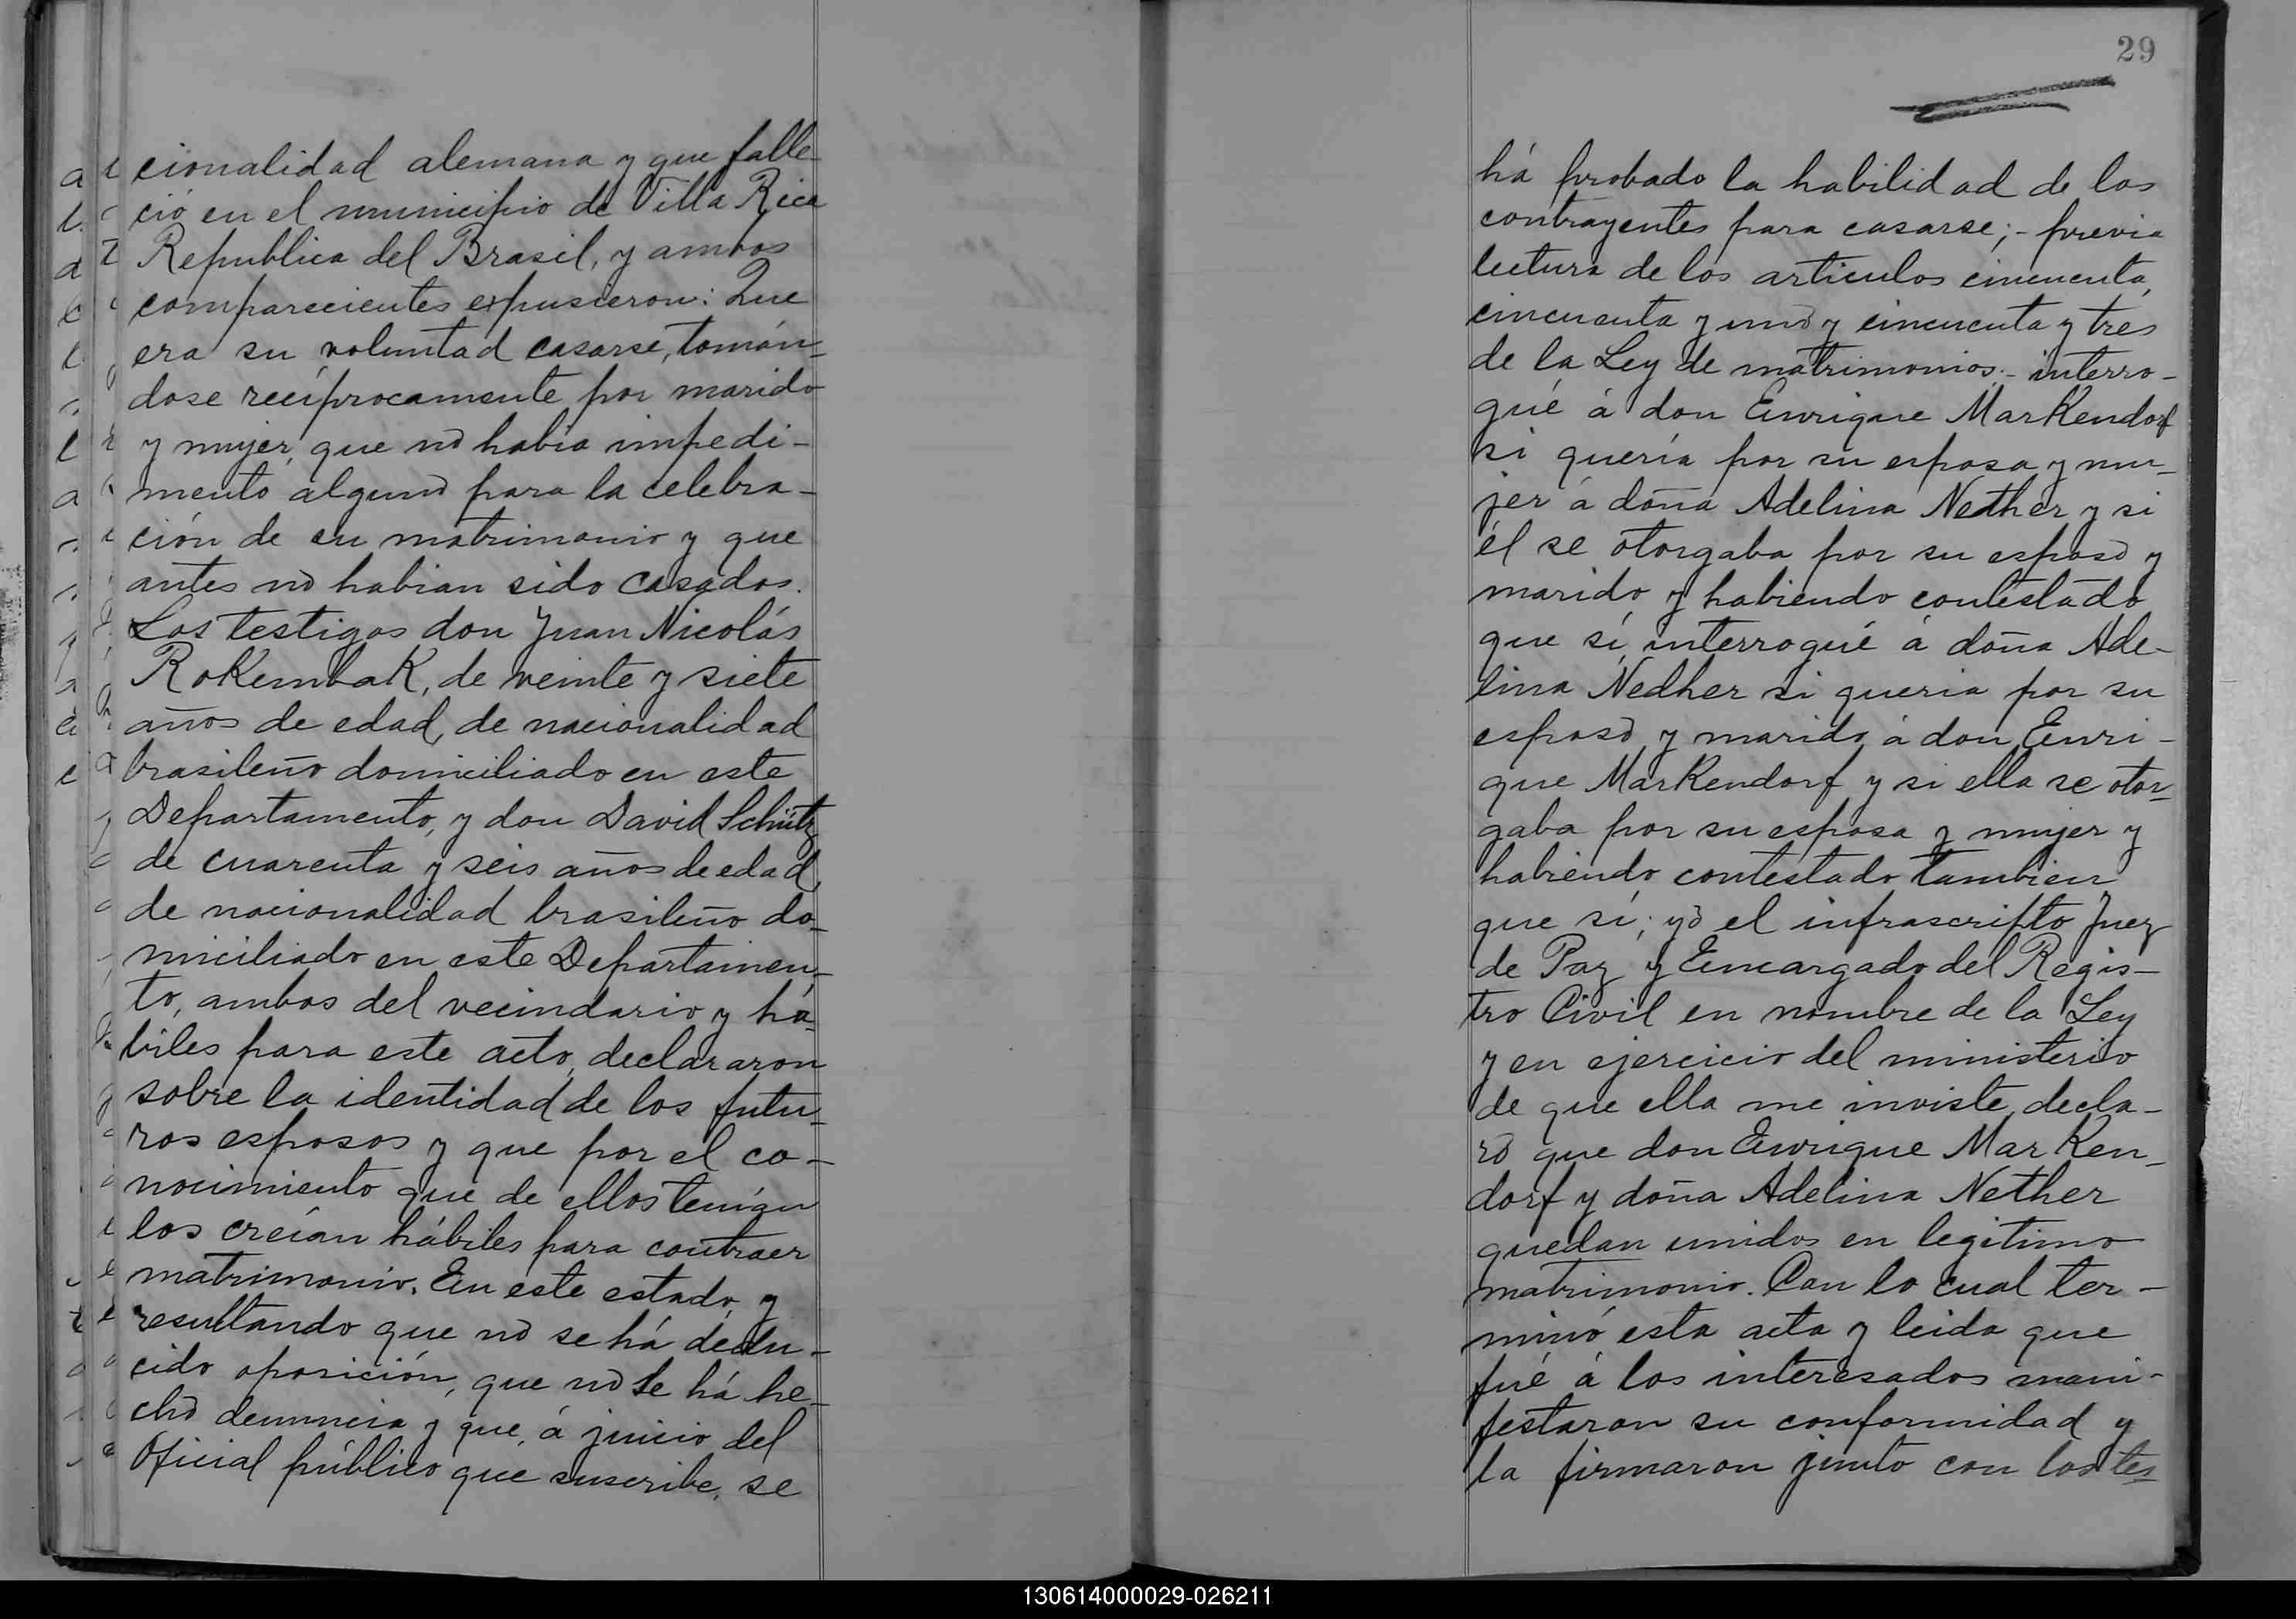 cionalidad alemana y que falle-
ció en el municipio de Villa Rica
Republica del Brasil, y ambos
comparecientes expusieron: Que
era su voluntad casarse, tomán-
dose recíprocamente por marido
y mujer, que nó habia impedi-
mento alguno para la celebra-
ción de su matrimonio y que
antes nó habian sido casados.
Los testigos don Juan Nicolás
RoKembaK, de veinte y siete
años de edad, de nacionalidad
brasileño domiciliado en este
Departamento, y don David Schütz
de cuarenta y seis años de edad,
de nacionalidad brasileño do-
miciliado en este Departamen-
to, ambos del vecindario y há-
biles para este acto, declararon
sobre la identidad de los futu-
ros esposos y que por el co-
nocimiento que de ellos tenían
los creían hábiles para contraer
matrimonio. En este estado, y
resultando que nó se há dedu-
cido oposición, que nó se há he-
cho denuncia y que, á juicio del
Oficial público que suscribe, se
29
há probado la habilidad de los
contrayentes para casarse;- previa
lectura de los articulos cincuenta,
cincuenta y uno y cincuenta y tres
de la Ley de matrimonios;- interro-
gué á don Enrique MarKendorf
si quería por su esposa y mu-
jer á doña Adelina Nether y si
él se otorgaba por su esposo y
marido y habiendo contestado
que sí, interrogué á doña Ade-
lina Nedher si queria por su
esposo y marido á don Enri-
que MarKendorf y si ella se otor-
gaba por su esposa y mujer y
habiendo contestado tambien
que sí; yó el infrascripto Juez
de Paz y Encargado del Regis-
tro Civil en nombre de la Ley
y en ejercicio del ministerio
de que ella me inviste, decla-
ró que don Enrique MarKen-
dorf y doña Adelina Nether
quedan unidos en legitimo
matrimonio. Con lo cual ter-
minó esta acta y leida que
fué á los interesados mani-
festaron su conformidad y
la firmaron junto con los tes-
130614000029-026211